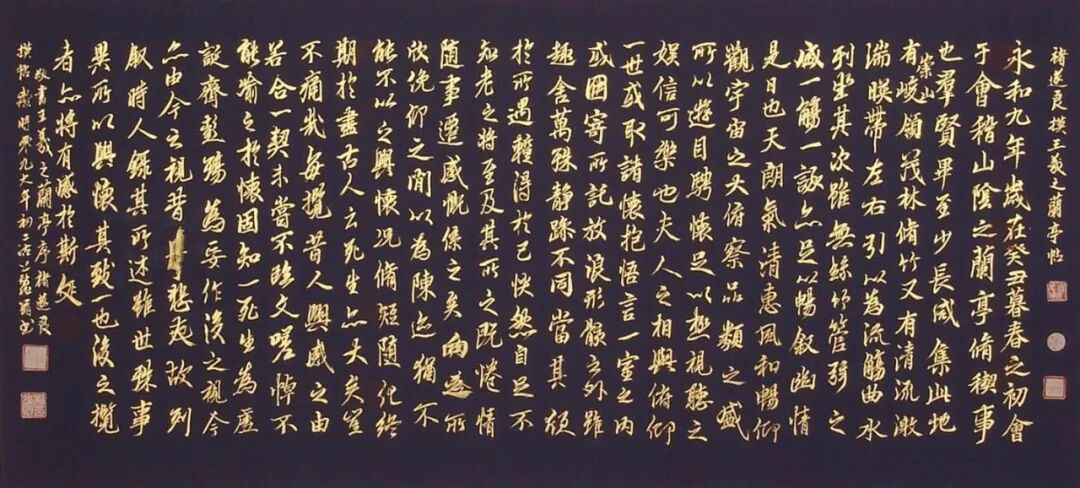 褚遂良摸王羲之蘭亭帖
永和九年歲在癸丑暮春之初會
于會稽山陰之蘭亭脩禊事
也羣賢畢至少長咸集此地
有崇山峻領茂林脩竹又有清流激
湍暎帶左右引以為流觴曲水
列坐其次雖無絲竹管弦之
盛一觴一詠亦足以暢敘幽情
是日也天朗氣清惠風和暢仰
觀宇宙之大俯察品類之盛
所以遊目騁懷足以極視聽之
娛信可樂也夫人之相與俯仰
一世或取諸懷抱悟言一室之內
或因寄所託放浪形骸之外雖
趣舍萬殊靜躁不同當其欣
於所遇輙得於己快然自足不
知老之將至及其所之既惓情
隨事遷感慨係之矣向之所
欣俛仰之閒以為陳迹猶不
能不以之興懷況脩短隨化終
期於盡古人云死生亦大矣豈
不痛哉每攬昔人興感之由
若合一契未嘗不臨文嗟悼不
能喻之於懷固知一死生為虛
誕齊彭殤為妄作後之視今
亦由今之視昔悲夫故列
敘時人錄其所述雖世殊事
異所以興懷其致一也後之攬
者亦將有感於斯文
敬書王羲之蘭亭序褚遂良
摸帖歲時零九大年初二